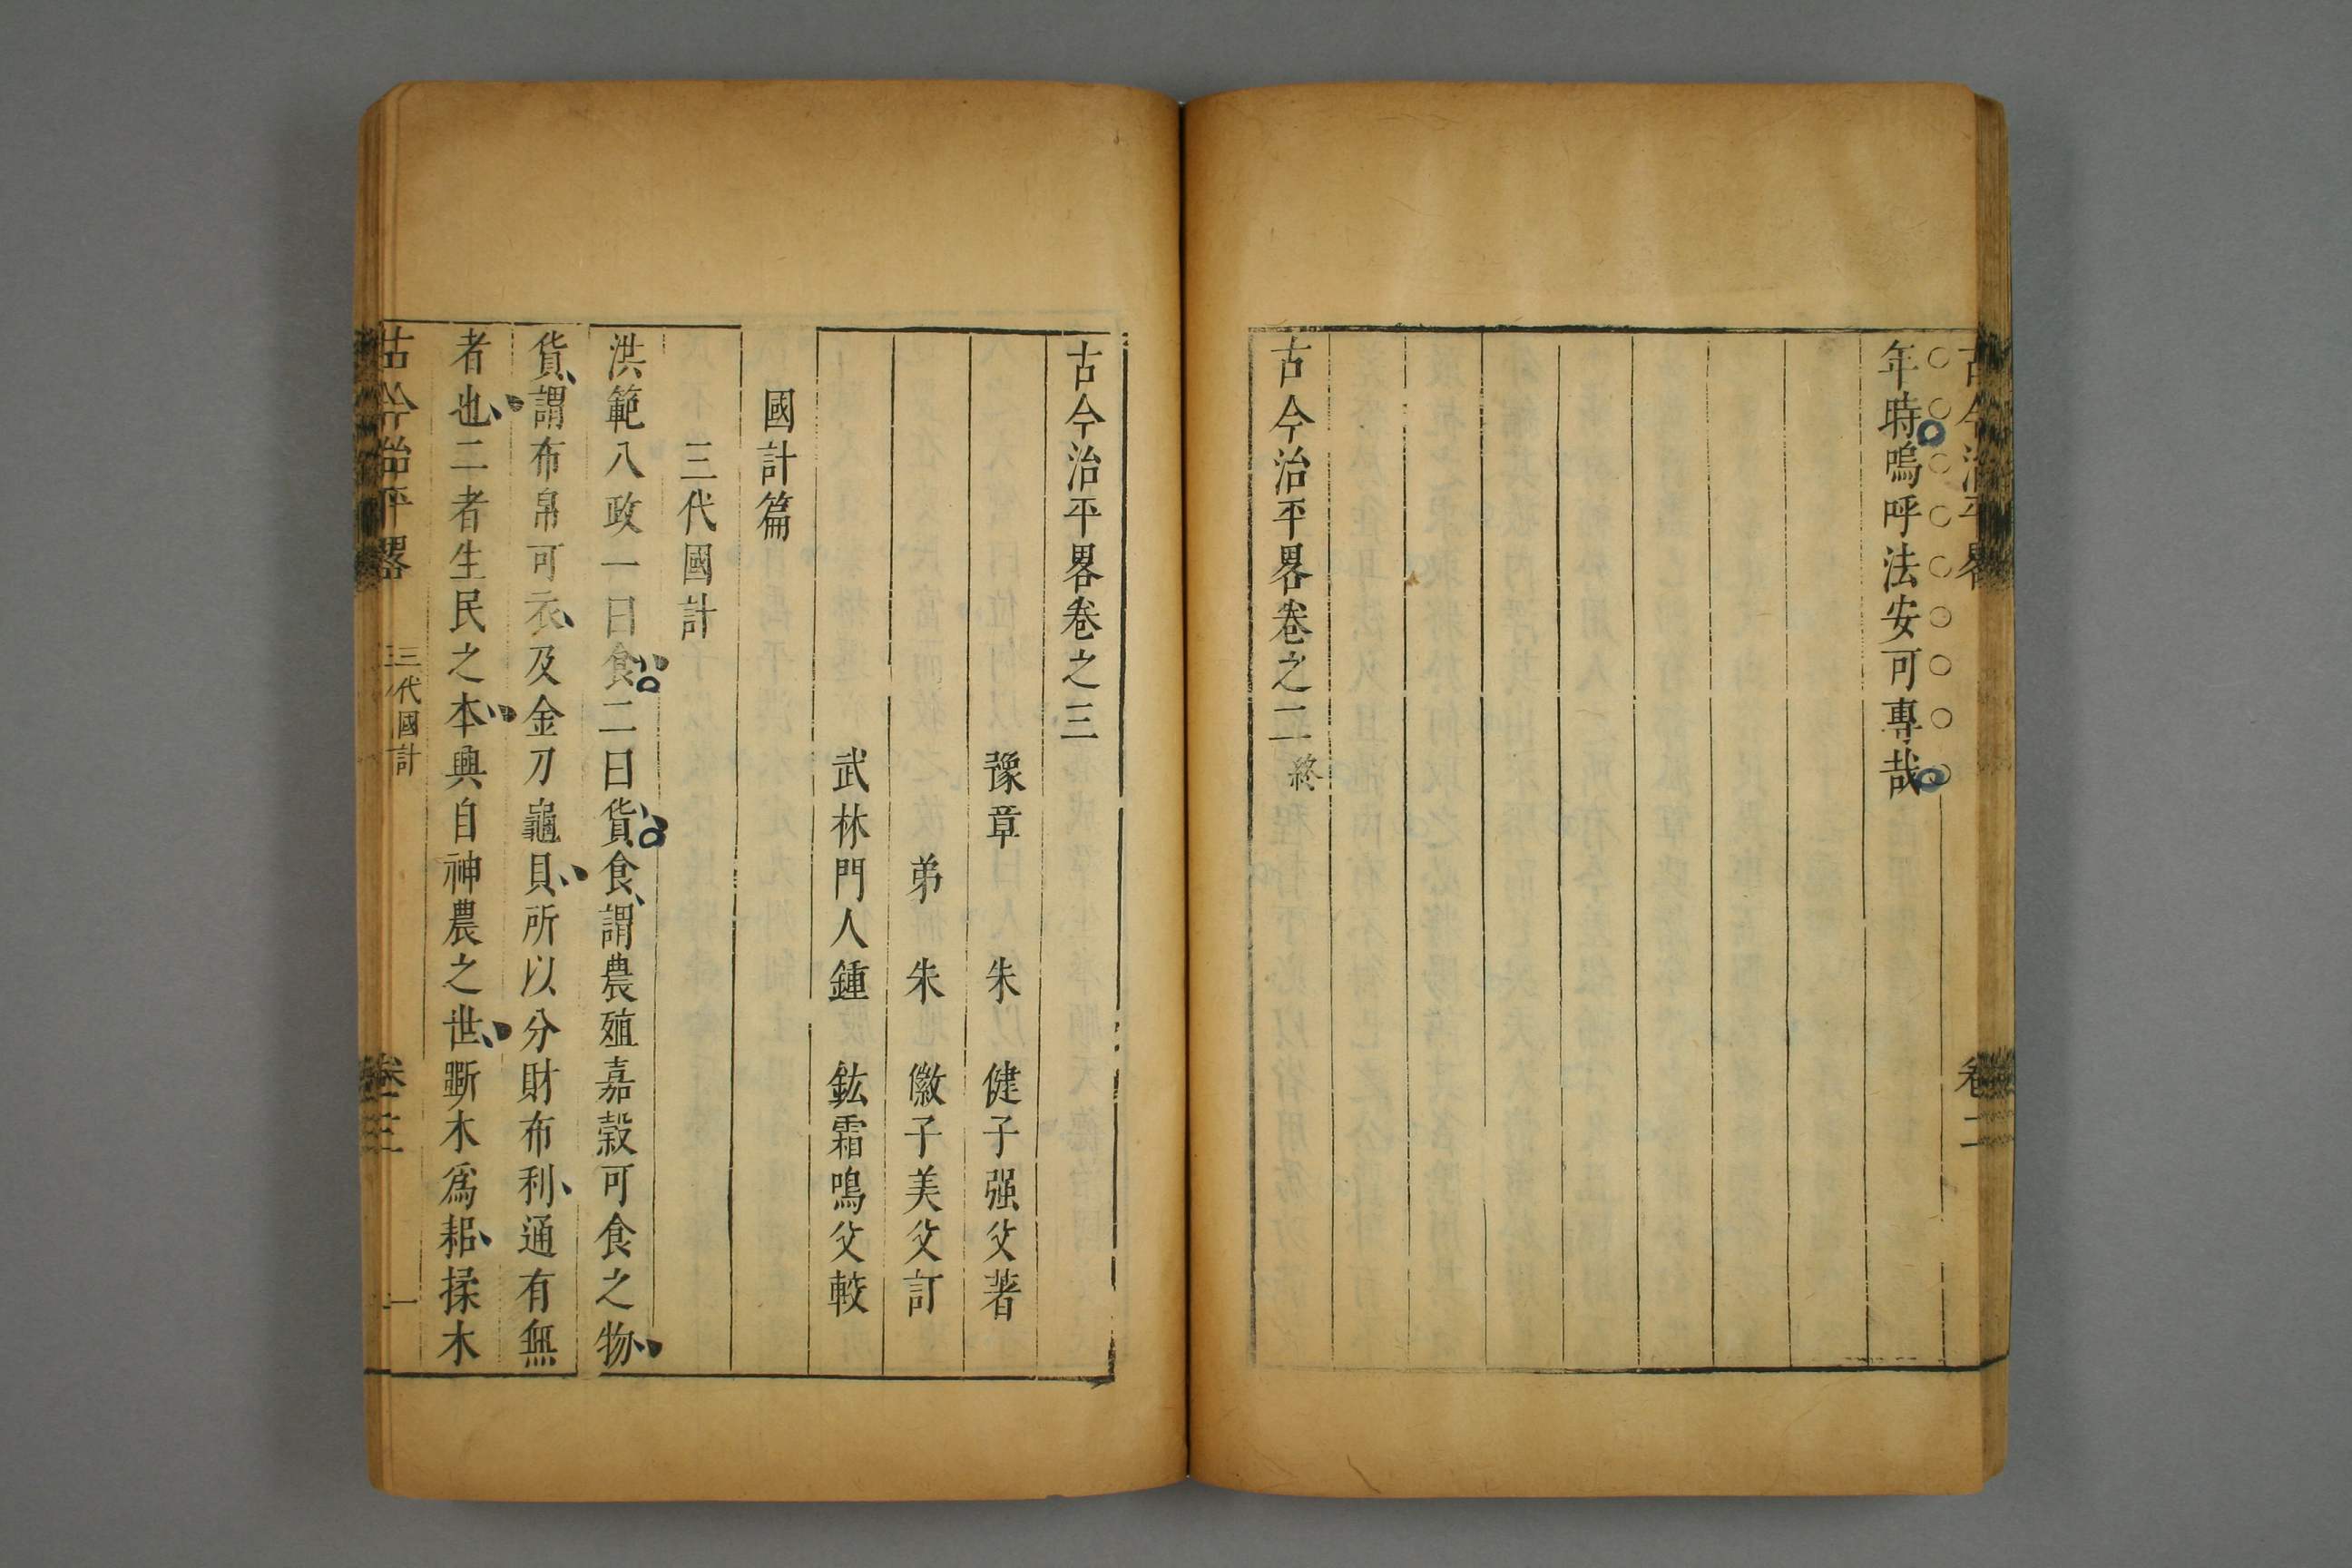 古今治平畧
卷二
年時嗚呼法安可專哉
古今治平畧卷之二終
古今治平畧卷之三
豫章 朱 健子强父著
弟 朱 徽子美父訂
武林門人鍾 鈜霜鳴父較
國計篇
三代國計
洪範八政一曰食二曰貨食謂農殖嘉穀可食之物
貨謂布帛可衣及金刀龜貝所以分財布利通有無
者也二者生民之本興自神農之世斲木爲耜揉木
古今治平畧 三代國計 卷三 一